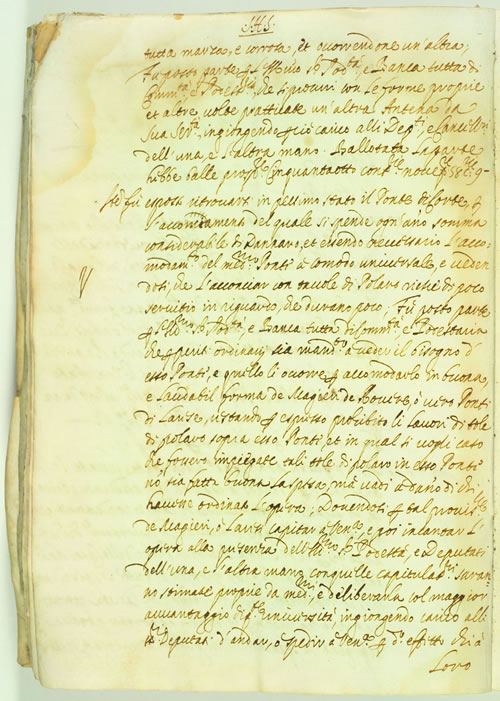 IHS.
tutta marza, e corrota, et occorrendone un'altra,
Fù posto parte per l'Ill.mo Sig. Pod.tà, e Banca tutta di
Comm.tà e Potest.ria, che si procuri con le forme proprie
et altre volte pratticate un'altra Antena da
Sua Ser.tà, ingiongendo per ciò carico alli Dep.ti, e Cancill.ri
dell'una, e l'altra mano. Ballotata la parte
hebbe balle prosp.e cinquantaotto cont.rie nove
esposto ritrovarsi in pessimo stato il Ponte di Corte, per
l'accomodamento del quale si spende ogn'anno somma
considerabile di dannaro, et essendo necessario l'acco-
modam.to del med.mo Ponte à commodo universale, e veden-
dosi, che l'acconciar con tavole di Polaro riesce di poco
servitio in riguardo, che durano poco, Fù posto parte
per l'Ill.mo Sig. Pod.tà, e Banca tutta di Comm.tà e Potestaria
che per periti ordinarij sia mand.o à veder il bisogno d'
esso Ponte, e quello li occore per accomodarlo in buona,
e laudabil forma de Magieri de Rovere, ò vero Ponti
di Larise, restando per espresso prohibito li lavori di tole
di polaro sopra esso Ponte, et in qual si vogli caso
che fossero impiegate tali tole di polaro in esso Ponte
non sia fatta buona la spesa, mà vadi à danno di chi
havesse ordinato l'opera, Dovendosi per tal provis.ne
de Magieri, ò Larise capitar à Ven.a, e poi incantar l'
opera alla presenza dell'Ill.mo Sig. Podestà, e Deputati
dell'una, e l'altra mano con quelle capitulat.ni saran-
no stimate proprie da med.mi, e deliberarla col maggior
avvantaggio di q.ta università, ingiongendo carico alli
Deputati d'andar, ò spedir à Ven.a per d.o effetto chi à
Loro